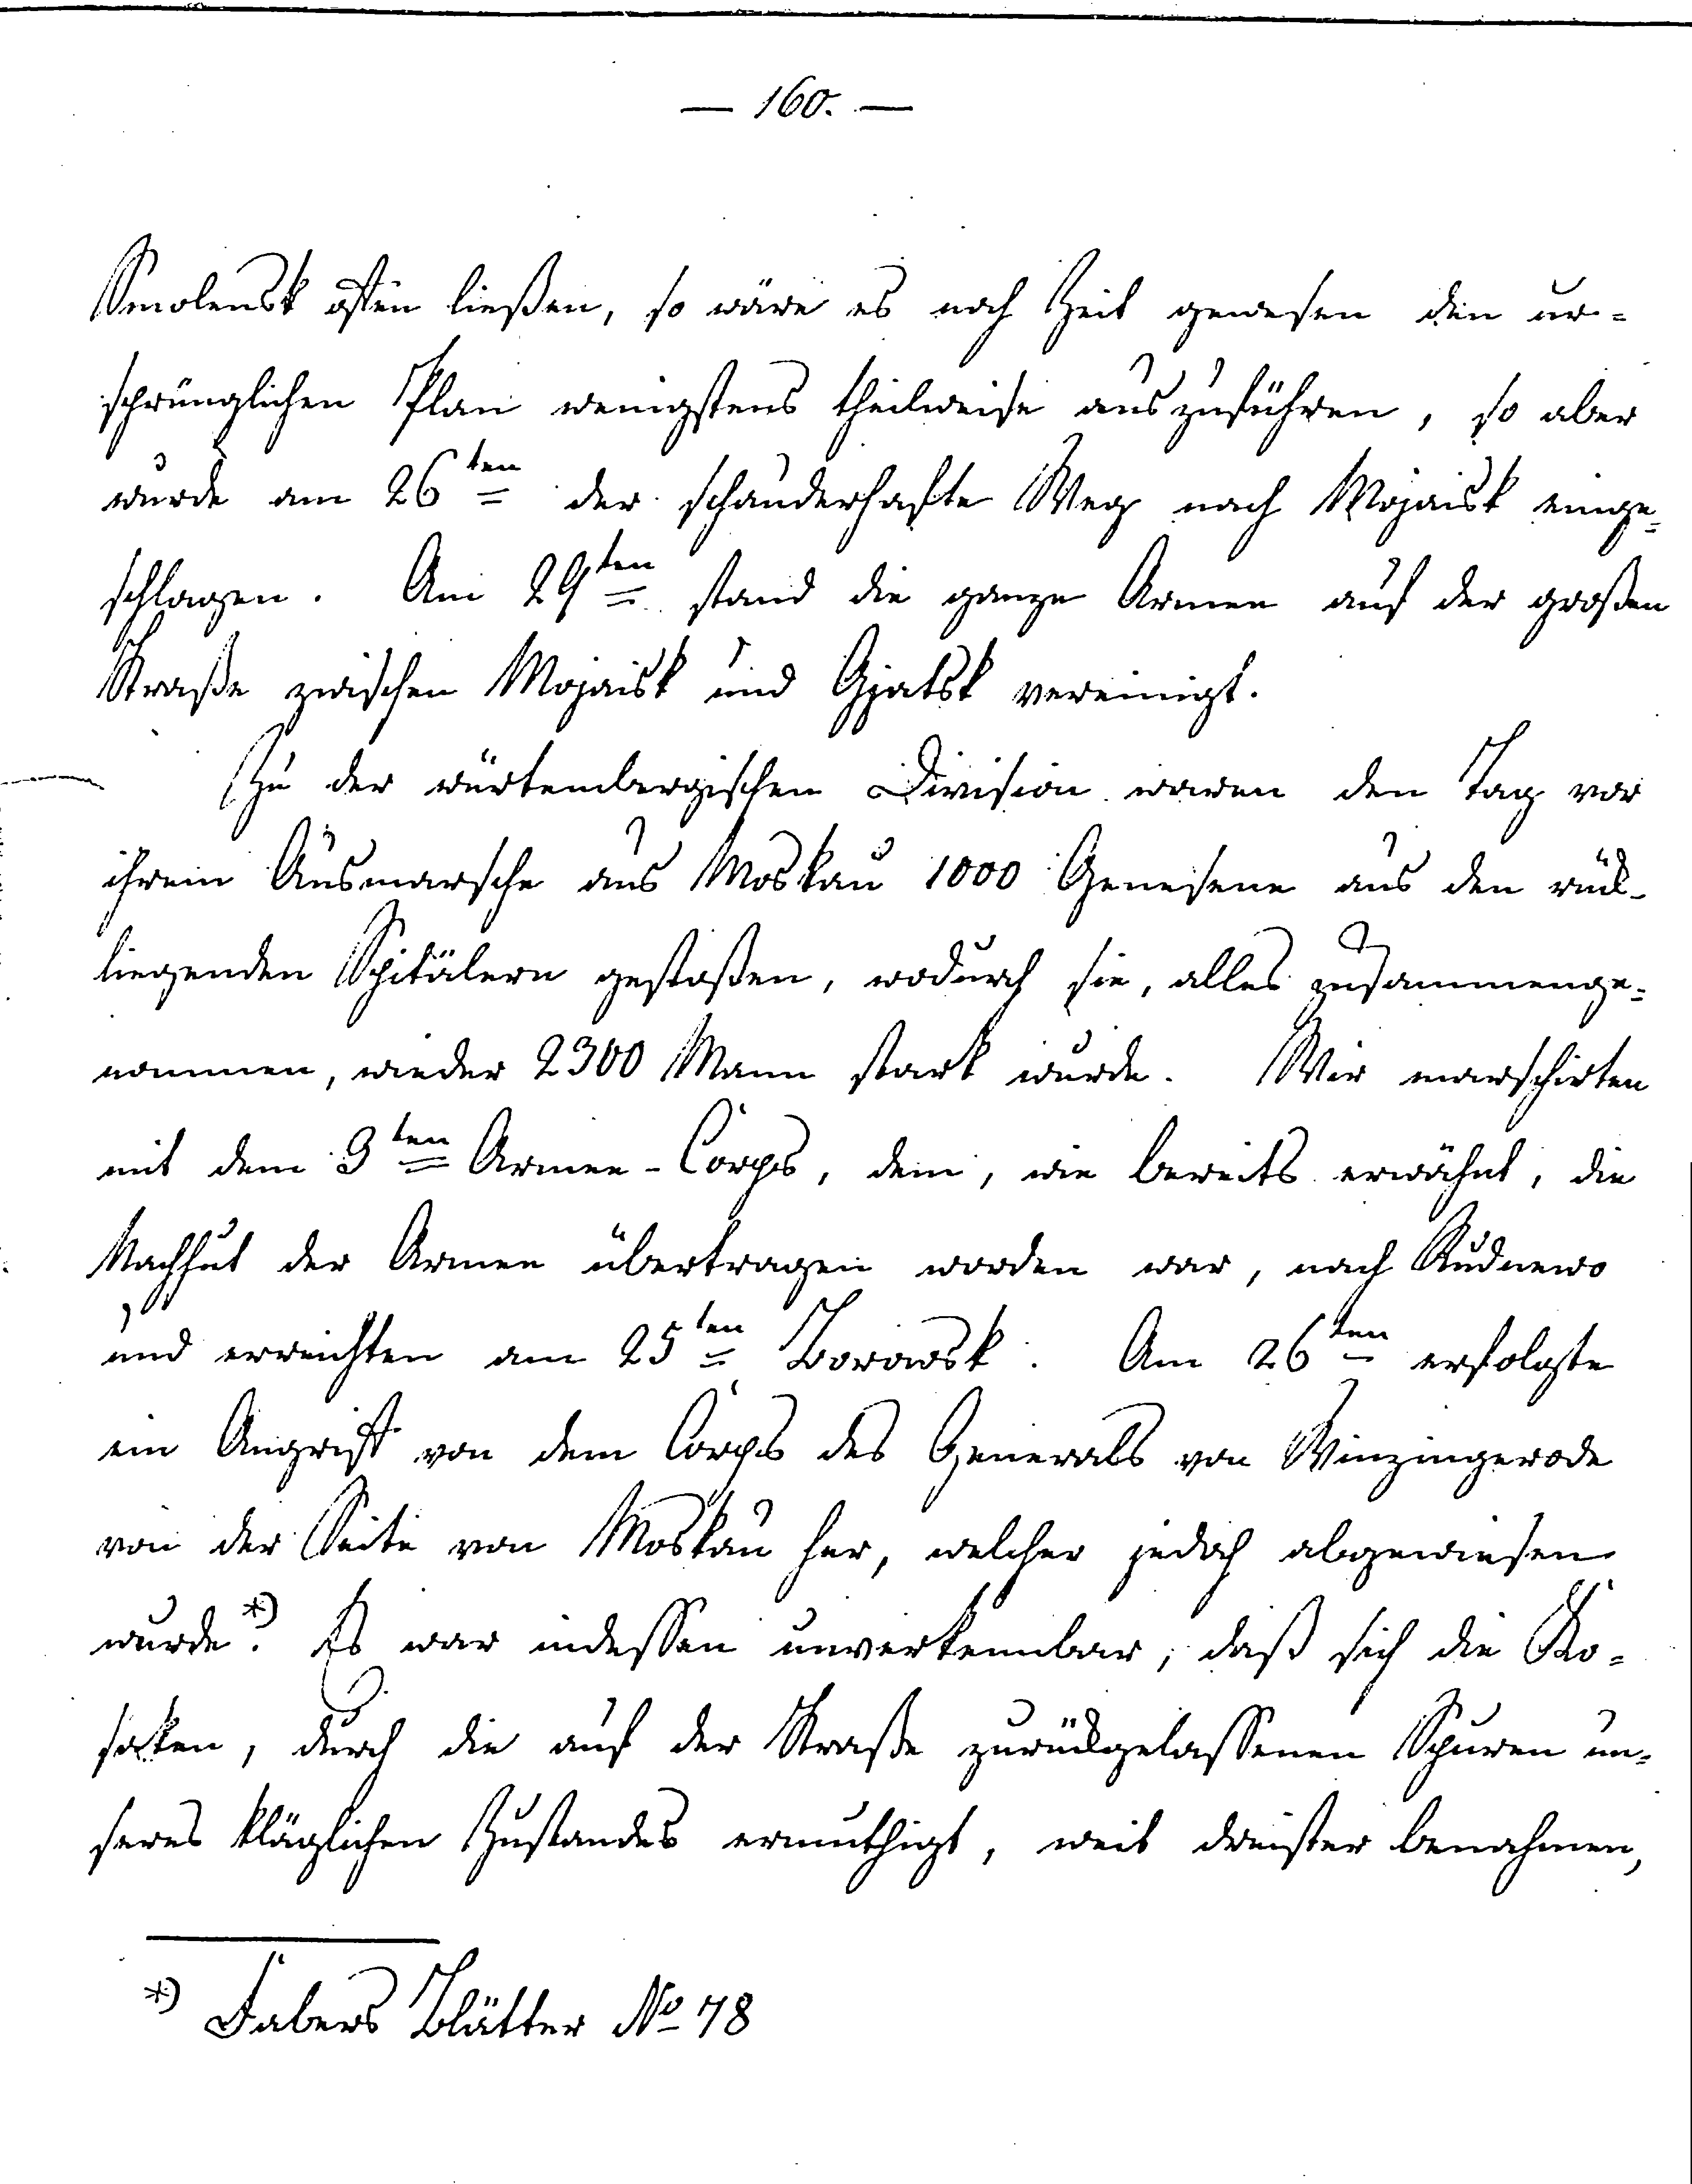 — 160. —
Smolensk offen ließen, so wäre es noch Zeit gewesen den ur-
sprünglichen Plan wenigstens theilweise auszuführen, so aber
wurde am 26ten der schauderhafte Weg nach Mojaisk einge-
schlagen. Am 29ten stand die ganze Armee auf der großen
Straße zwischen Mojaisk und Gjatsk vereinigt.
Zu der würtembergischen Division waren den Tag vor
ihrem Ausmarsche aus Moskau 1000 Genesene aus den rück-
liegenden Spitälern gestoßen, wodurch sie, alles zusammenge-
nommen, wieder 2300 Mann stark wurde. Wir marschirten
mit dem 3ten Armee-Corps, dem, wie bereits erwähnt, die
Nachhut der Armee übertragen worden war, nach Rudnewo
und erreichten am 25ten Borowsk. Am 26ten erfolgte
ein Angriff von dem Corps des Generals von Winzingerode
von der Seite von Moskau her, welcher jedoch abgewiesen
wurde*). Es war indessen unverkennbar, daß sich die Ko-
saken, durch die auf der Straße zurückgelassenen Spuren un-
seres kläglichen Zustandes ermuthigt, weit dreister benahmen,
*) Fabers Blätter No 78